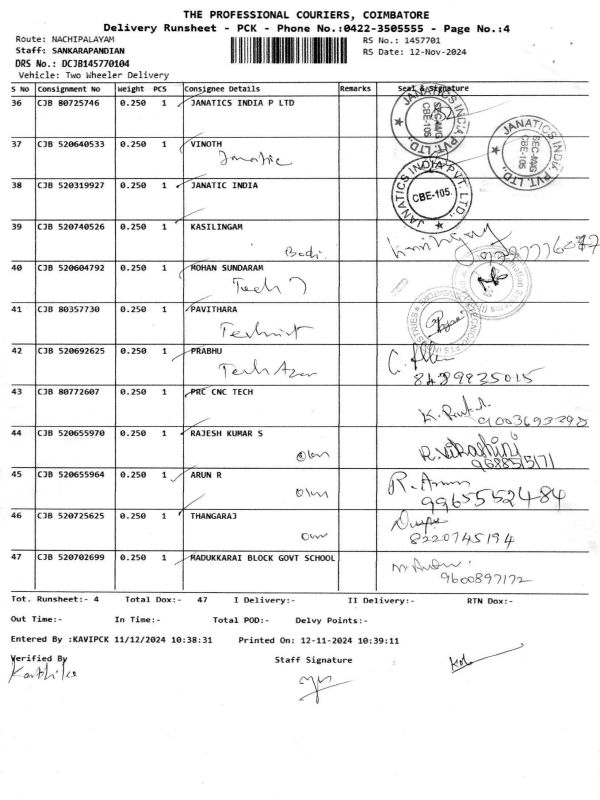 THE PROFESSIONAL COURIERS, COIMBATORE
Delivery Runsheet - PCK - Phone No.:0422-3505555 - Page No.:4
Route: NACHIPALAYAM
RS No.: 1457701
Staff: SANKARAPANDIAN
RS Date: 12-Nov-2024
DRS No.: DCJB145770104
Vehicle: Two Wheeler Delivery
S No Consignment No Weight PCS Consignee Details Remarks Seal & Signature
36 CJB 80725746 0.250 1 JANATICS INDIA P LTD
JANATICS INDIA PVT. LTD.
SEC-MNG
CBE-105
37 CJB 520640533 0.250 1 VINOTH
Janatic
JANATICS INDIA PVT. LTD.
SEC-MNG
CBE-105
38 CJB 520319927 0.250 1 JANATIC INDIA
JANATICS INDIA PVT. LTD.
CBE-105.
39 CJB 520740526 0.250 1 KASILINGAM
Bodi
40 CJB 520604792 0.250 1 MOHAN SUNDARAM
Tech
41 CJB 80357730 0.250 1 PAVITHARA
42 CJB 520692625 0.250 1 PRABHU
Tech
8489935015
43 CJB 80772607 0.250 1 PRC CNC TECH
9003693298
44 CJB 520655970 0.250 1 RAJESH KUMAR S
9688515171
45 CJB 520655964 0.250 1 ARUN R
R. Arun
9965552484
46 CJB 520725625 0.250 1 THANGARAJ
8220745194
47 CJB 520702699 0.250 1 MADUKKARAI BLOCK GOVT SCHOOL
9600897172
Tot. Runsheet:- 4 Total Dox:- 47 I Delivery:- II Delivery:- RTN Dox:-
Out Time:- In Time:- Total POD:- Delvy Points:-
Entered By :KAVIPCK 11/12/2024 10:38:31 Printed On: 12-11-2024 10:39:11
Verified By Staff Signature